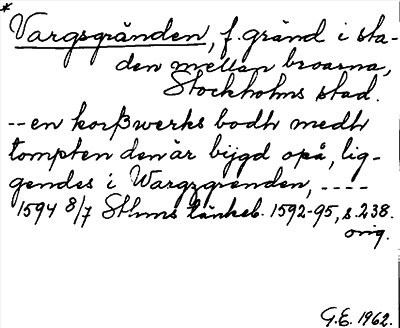 * Vargsgränden, f. gränd i sta-
den mellan broarna,
Stockholms stad.
-- en korßwerks bodh medh
tompten den är bijgd opå, lig-
gendes i Wargzgrenden, ----
1594 8/7 Sthms tänkeb. 1592-95, s. 238.
orig.
G.E. 1962.